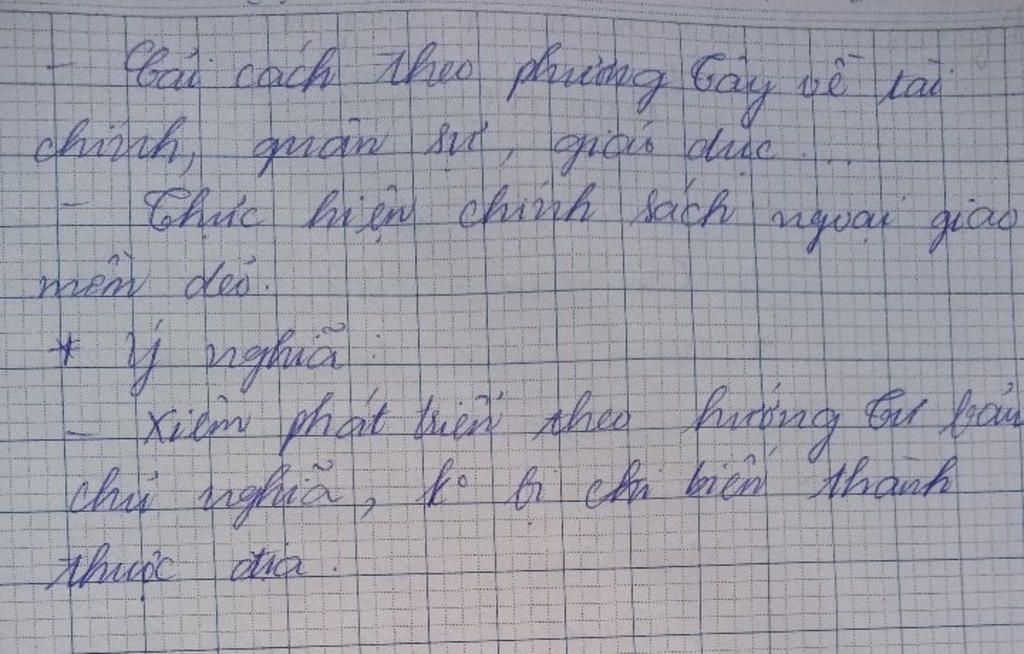 - Cải cách theo phương Tây về tài
chính, quân sự, giáo dục ...
- Thực hiện chính sách ngoại giao
mềm dẻo.
* Ý nghĩa :
- Xiêm phát triển theo hướng Tư bản
chủ nghĩa, ko bị biến thành
thuộc địa.